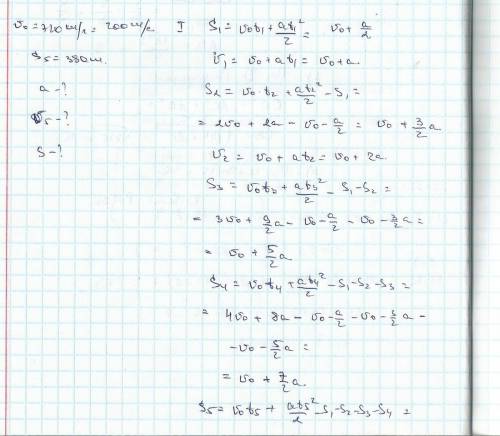 v₀ = 720 км/ч = 200 м/с.
S₅ = 380 м.
a - ?
v₅ - ?
S - ?
I S₁ = v₀t₁ + at₁²/2 = v₀ + a/2
v₁ = v₀ + at₁ = v₀ + a.
S₂ = v₀t₂ + at₂²/2 - S₁ =
= 2v₀ + 2a - v₀ - a/2 = v₀ + 3/2 a
v₂ = v₀ + at₂ = v₀ + 2a.
S₃ = v₀t₃ + at₃²/2 - S₁ - S₂ =
= 3v₀ + 9/2 a - v₀ - a/2 - v₀ - 3/2 a =
= v₀ + 5/2 a
S₄ = v₀t₄ + at₄²/2 - S₁ - S₂ - S₃ =
= 4v₀ + 8a - v₀ - a/2 - v₀ - 3/2 a -
- v₀ - 5/2 a =
= v₀ + 7/2 a.
S₅ = v₀t₅ + at₅²/2 - S₁ - S₂ - S₃ - S₄ =